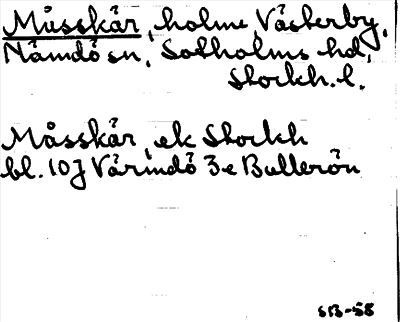 Musskär, holme, Västerby,
Nämdö sn, Sotholms hd,
Stockh. l.
Måsskär, ek Stockh
bl. 10J Värmdö 3e Bullerön
SB-58